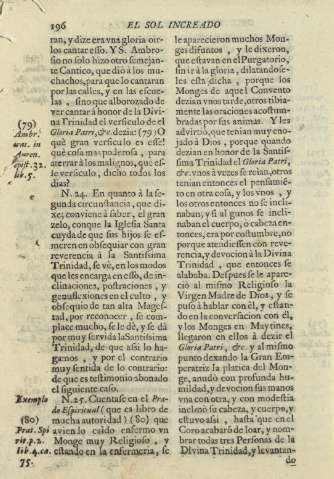 196 EL SOL INCREADO
ran, y dize era vna gloria oir-
los cantar esso. Y S. Ambro-
sio no solo hizo otro semejan-
te Cantico, que dió a los mu-
chachos, para que lo cantaran
por las calles, y en las escue-
las, sino que alborozado de
ver cantar à honor de la Divi-
na Trinidad el versiculo de el
Gloria Patri, &c. dezia: (79) O
què gran versiculo es esse!
què cosa mas poderosa, para
aterrar à los malignos, que es-
se versiculo, dicho todos los
dias?
N. 24. En quanto à la se-
gunda circunstancia, que di-
xe; conviene à saber, el gran
zelo, conque la Iglesia Santa
cuyda de que sus hijos se es-
meren en obsequiar con gran
reverencia à la Santissima
Trinidad, se vè, en los modos
que les encarga en esso, de in-
clinaciones, postraciones, y
genuflexiones en el culto, y
obsequio de tan alta Mages-
tad, por reconocer, se com-
place mucho, se le dè, y se dà
por muy servida la Santissima
Trinidad, de que assi lo ha-
gamos, y por el contrario
muy sentida de lo contrario:
de que es testimonio abonado
el siguiente caso.
N. 25. Cuentase en el Pra-
do Espiritual (que es libro de
mucha autoridad) (80) que
avien lo caido enfermo vn
Monge muy Religioso, y
estando en la enfermeria, se
(79)
Ambr.
in
Auxen.
epist. 32.
lib. 5.
Exemplo
(80)
Prat. Spi
rit. p. 2.
lib. 4. ca.
75.
le aparecieron muchos Mon-
ges difuntos, y le dixeron,
que estavan en el Purgatorio,
sin ir à la gloria, dilatandose-
les esta dicha, porque los
Monges de aquel Convento
dezian vnos tarde, otros tibia-
mente las oraciones acostum-
bradas por sus animas. Y les
advirtió, que tenian muy eno-
jado à Dios, porque quando
dezian en honor de la Santis-
sima Trinidad el Gloria Patri,
&c. vnos à vezes se reian, otros
tenian entonces el pensamie-
to en otra cosa, y los vnos, y
los otros entonces no se incli-
naban; y si algunos se incli-
naban el cuerpo, ó cabeza en-
tonces, era por costumbre, no
porque atendiessen con reve-
rencia, y devocion à la Divina
Trinidad, que entonces se
alababa. Despues se le apare-
ció al mismo Religioso la
Virgen Madre de Dios, y se
pusó à hablar con èl, y estan-
do en la conversacion con èl,
y los Monges en Maytines,
llegaron en ellos à dezir el
Gloria Patri, &c. y al mismo
punto dexando la Gran Em-
peratriz la platica del Mon-
ge, anudó con profunda hu-
mildad, y devocion sus manos
vna con otra, y con modestia
inclinó su cabeza, y cuerpo, y
estuvo assi, hasta que en el
Coro acabaró de loar, y nom-
brar todas tres Personas de la
Divina Trinidad, y levantan-
do